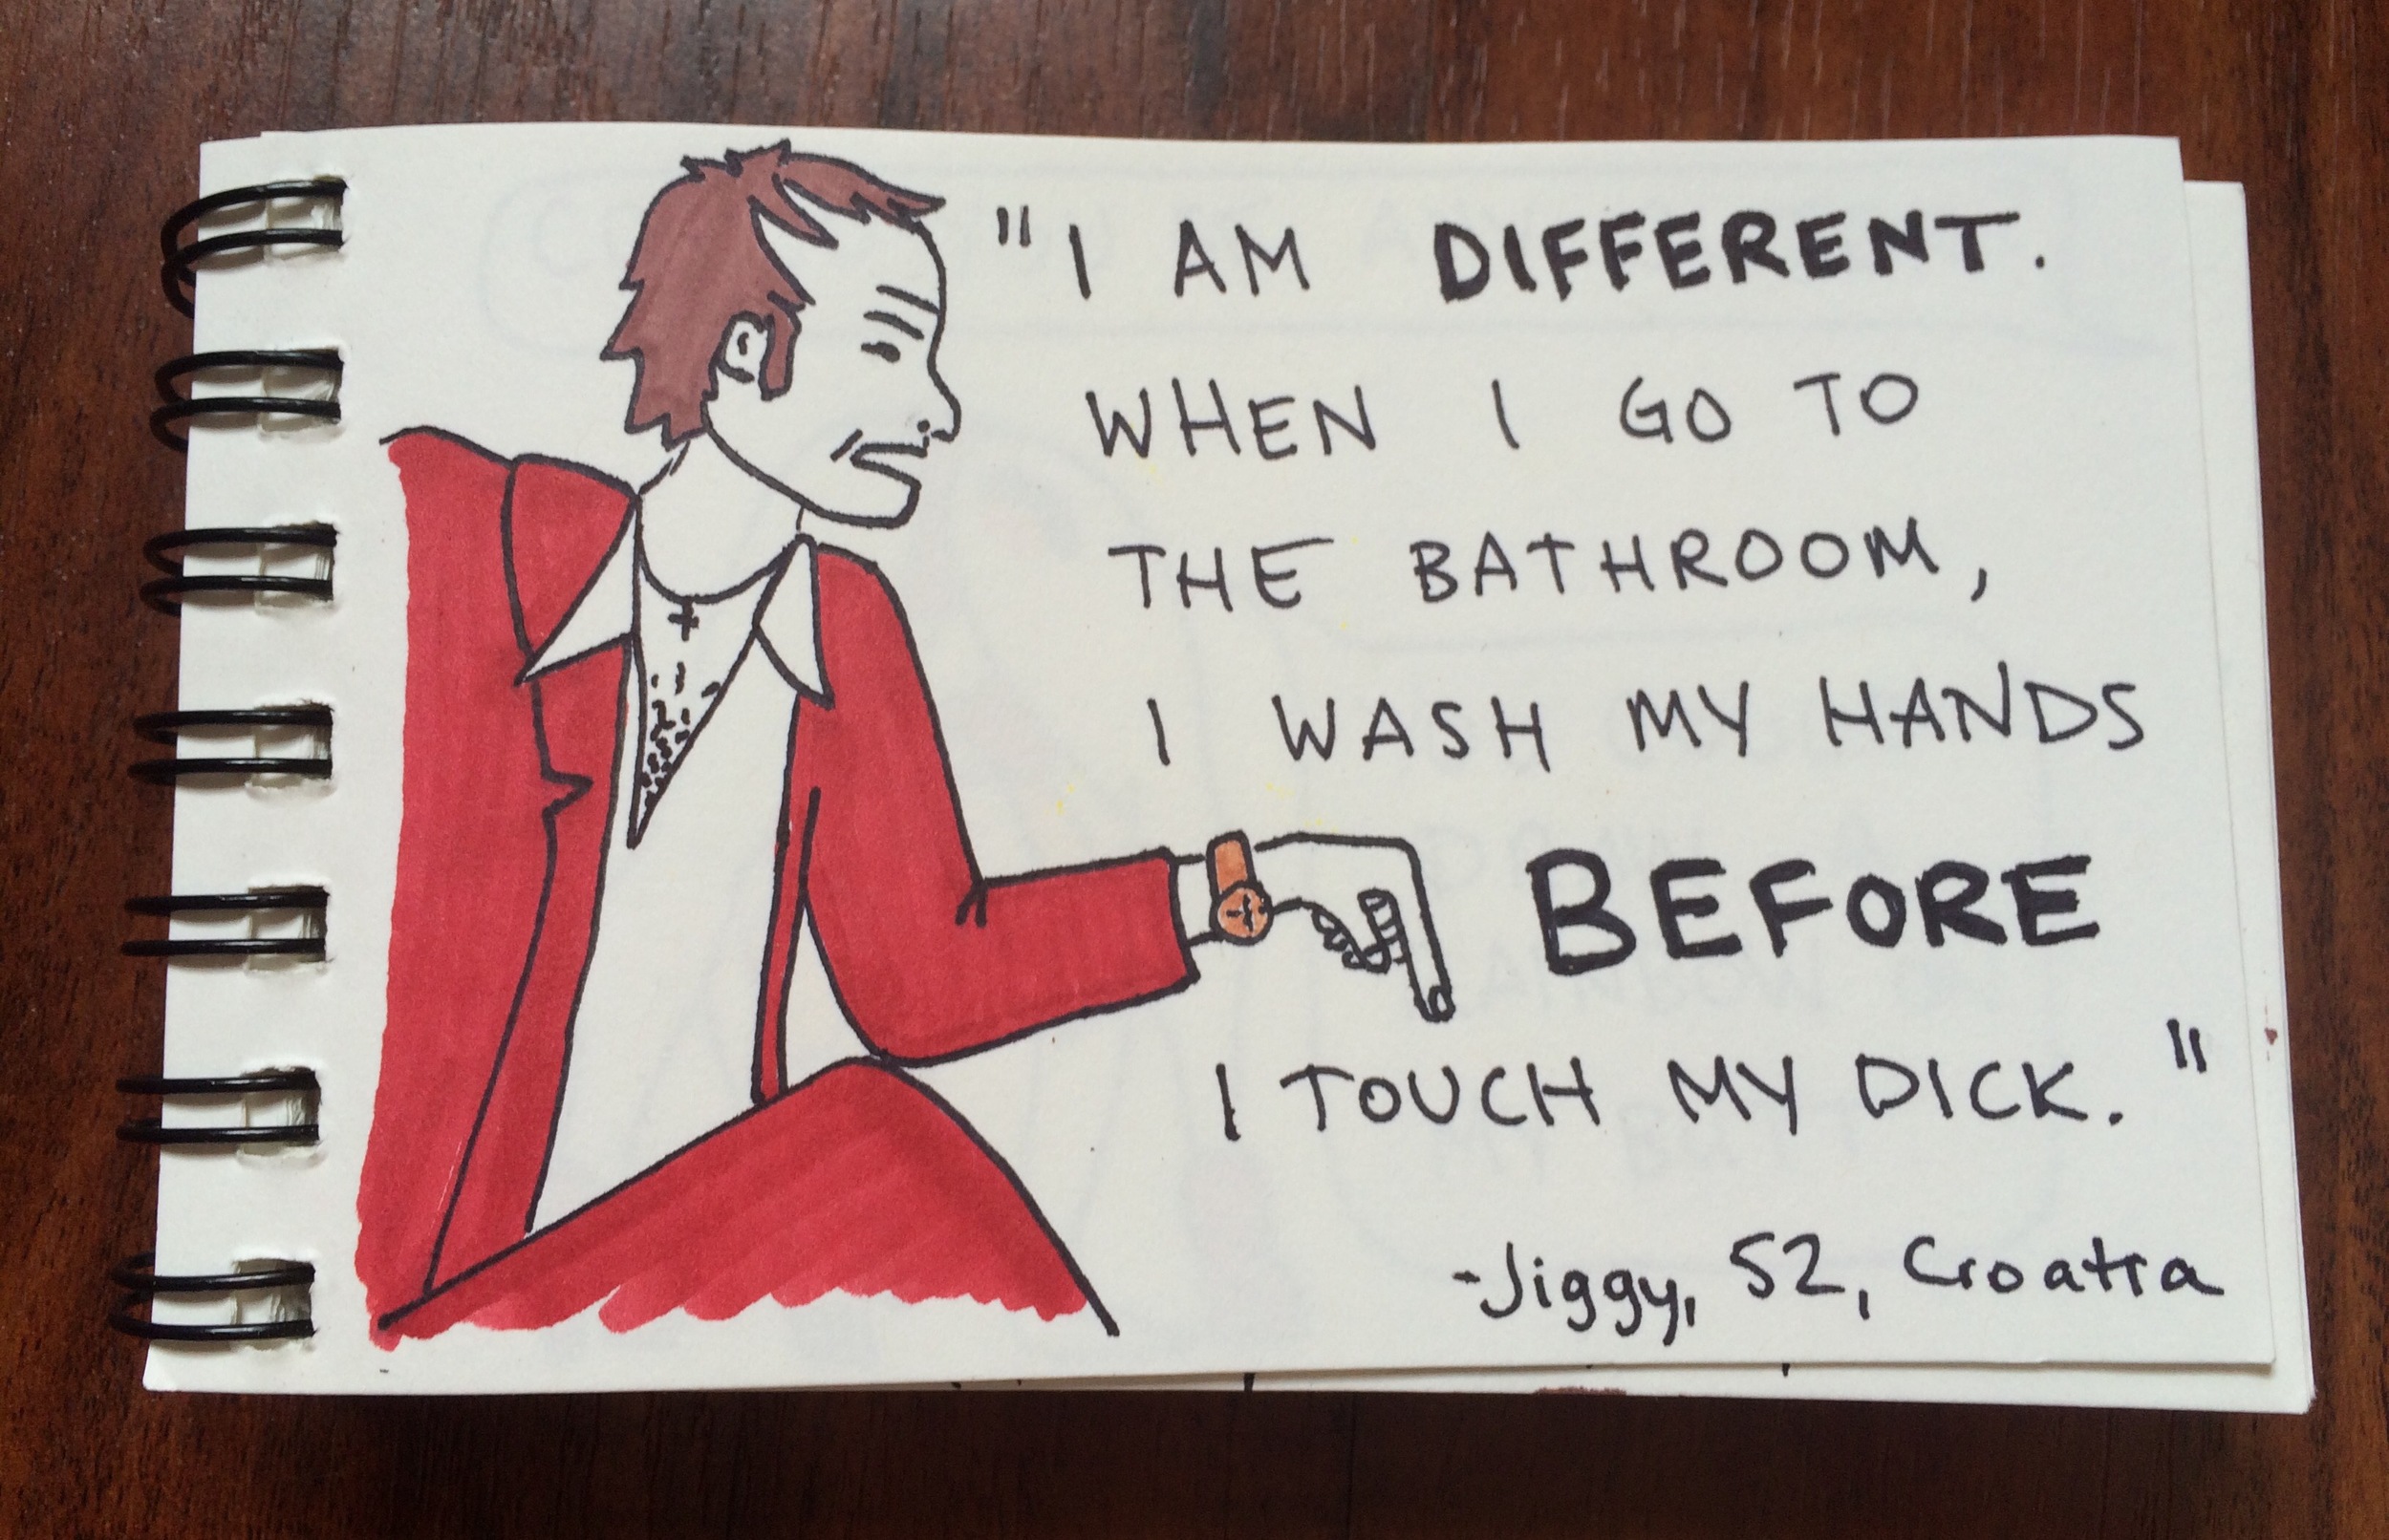 "I AM DIFFERENT.
WHEN I GO TO
THE BATHROOM,
I WASH MY HANDS
BEFORE
I TOUCH MY DICK."
-Jiggy, 52, Croatia